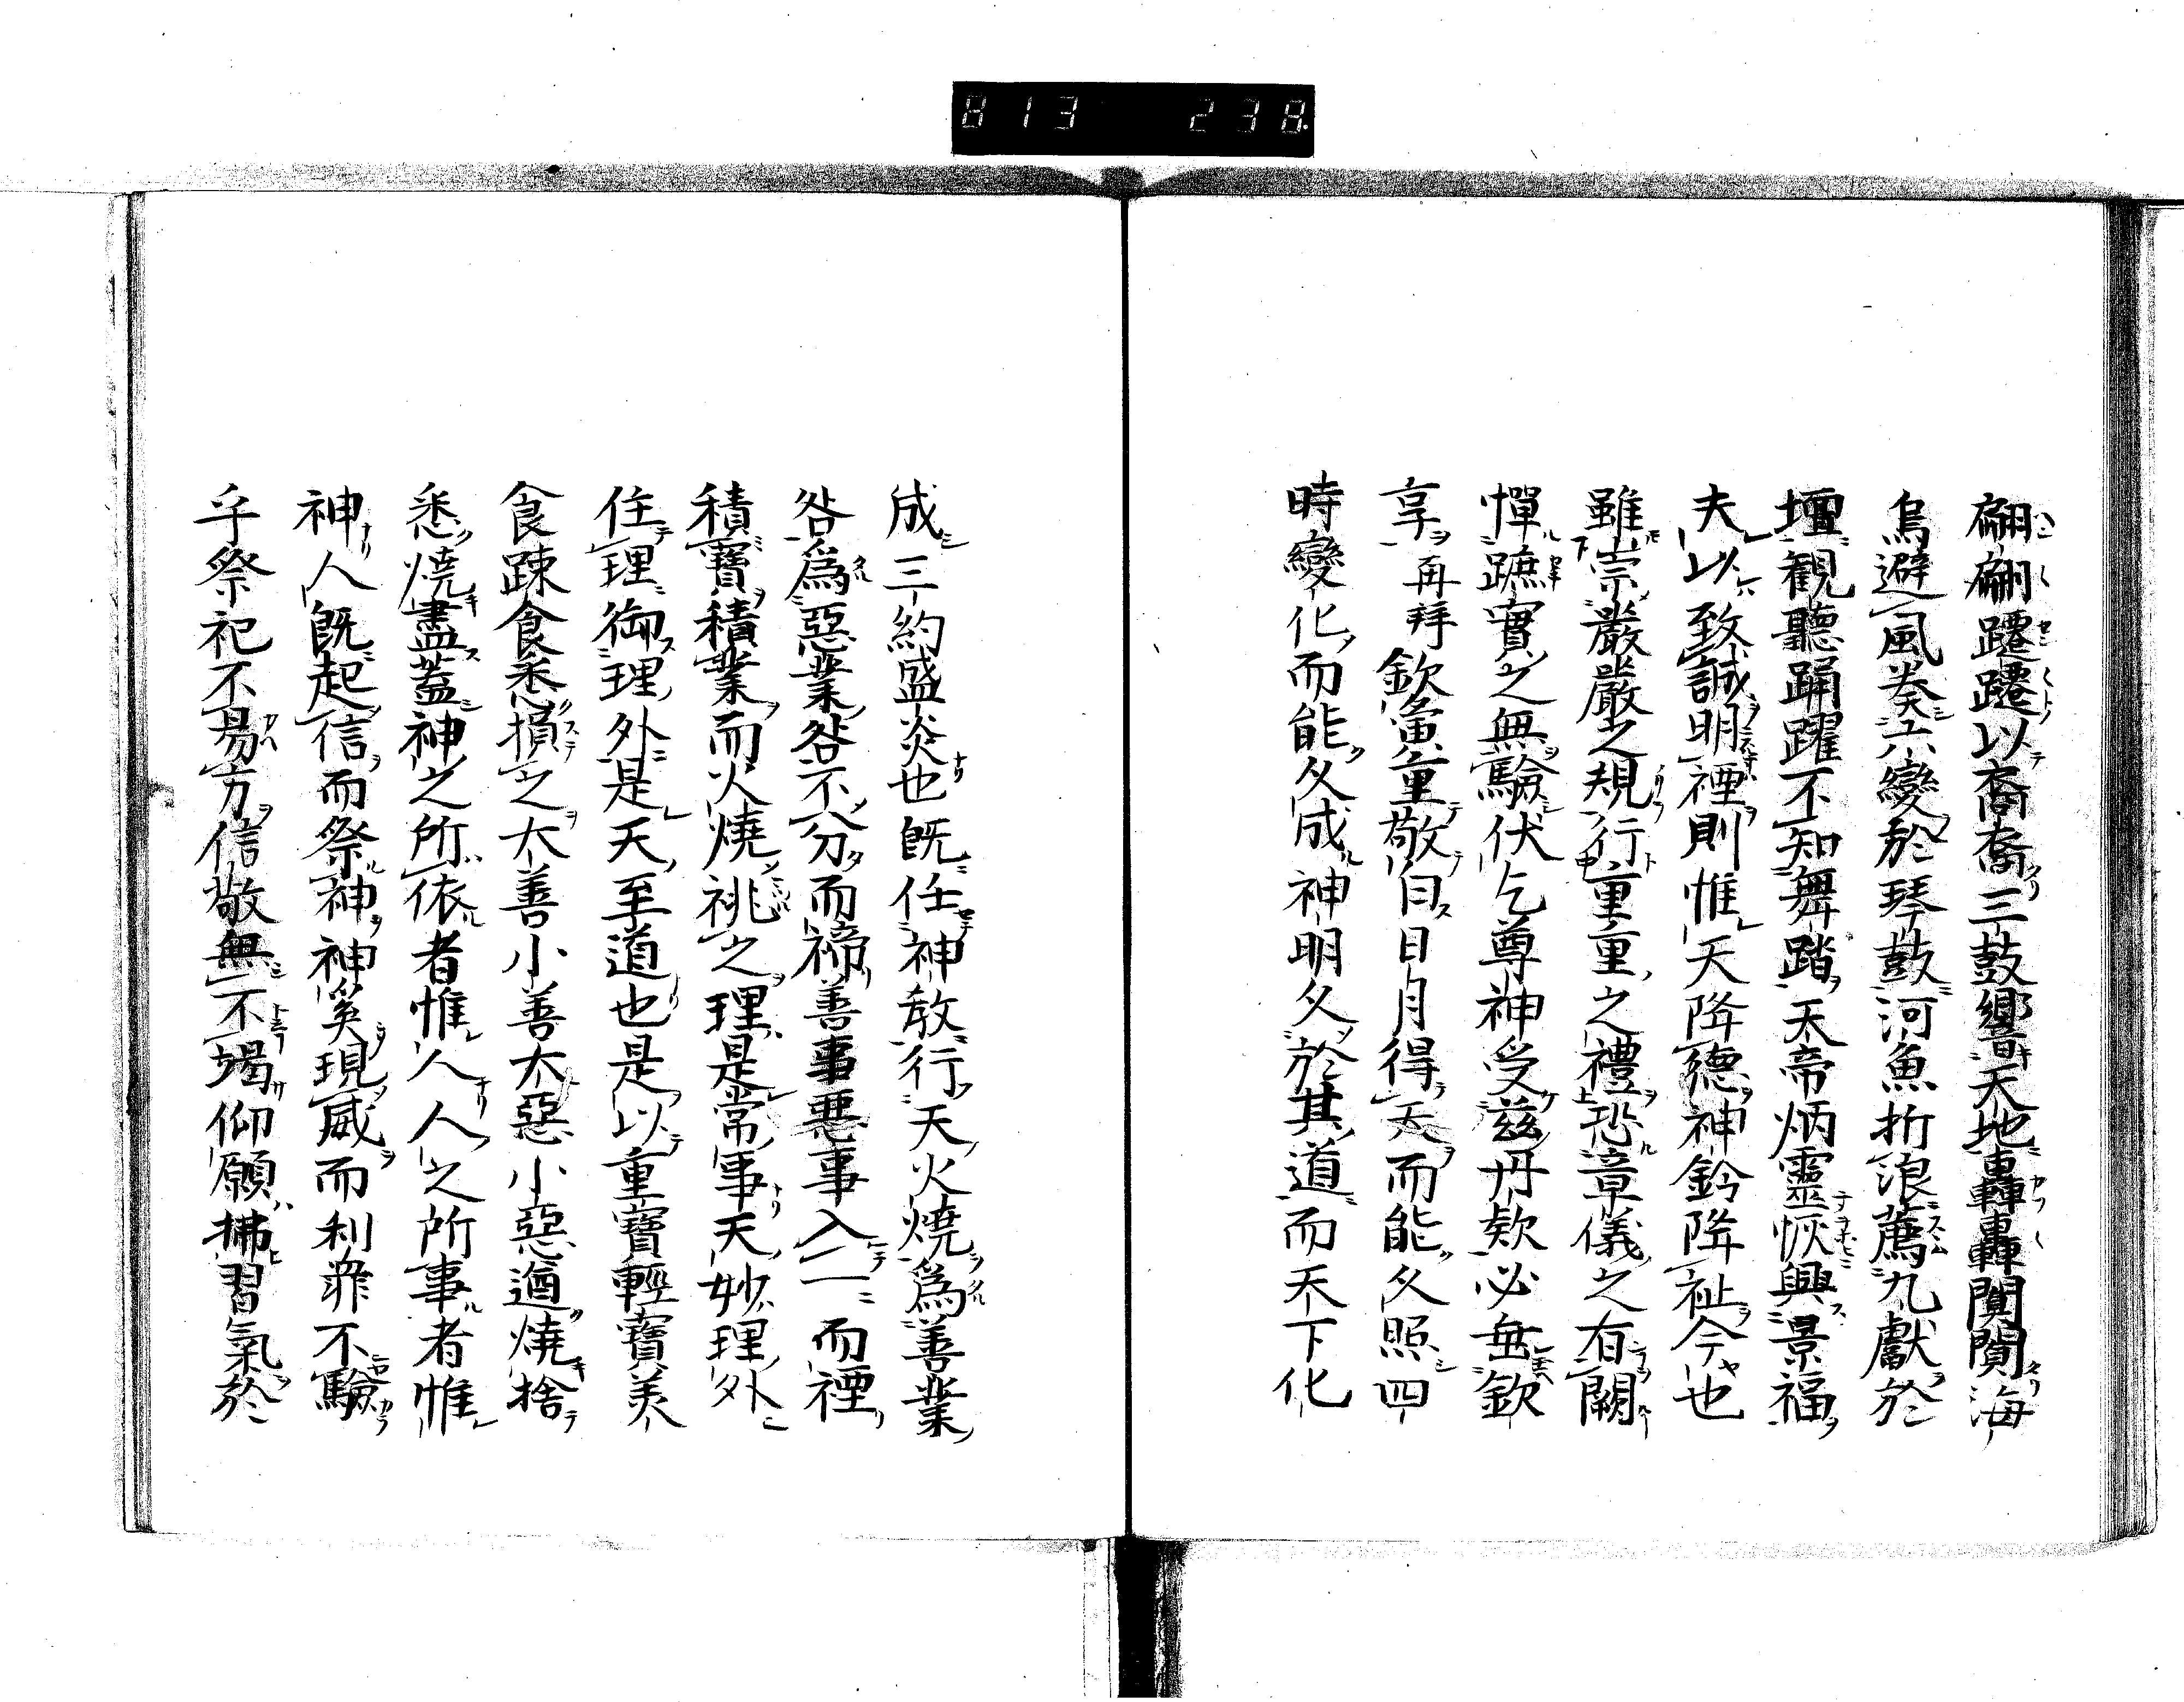 813 238.
翩翩蹮蹮以裔裔三鼓響天地轟轟闐闐海
烏避風奏六變於琴鼓河魚折浪薦九獻於
壇觀聽踊躍不知舞踏天帝炳靈恢興景福
夫以致誠明禋則惟天降德神鈐降祉今也
雖崇嚴嚴之規行重重之禮恐章儀之有闕
憚蹠實之無驗伏乞尊神受茲丹欵必無欽
享再拜欽重敬白日月得天而能久照四
時變化而能久成神明久於其道而天下化
成三約盛炎也既任神教行天火燒爲善業
咎爲惡業咎不分而禘善事惡事入一而禋
積寶積業而火燒祧之理是常事天妙理外
住理御理外是天至道也是以重寶輕寶美
食踈食悉損之大善小善大惡小惡遒燒捨
悉燒盡蓋神之所依者惟人人之所事者惟
神人既起信而祭神神奚現威而利罪不驗
乎祭祀不易方信敬無不竭仰願拂習氣於